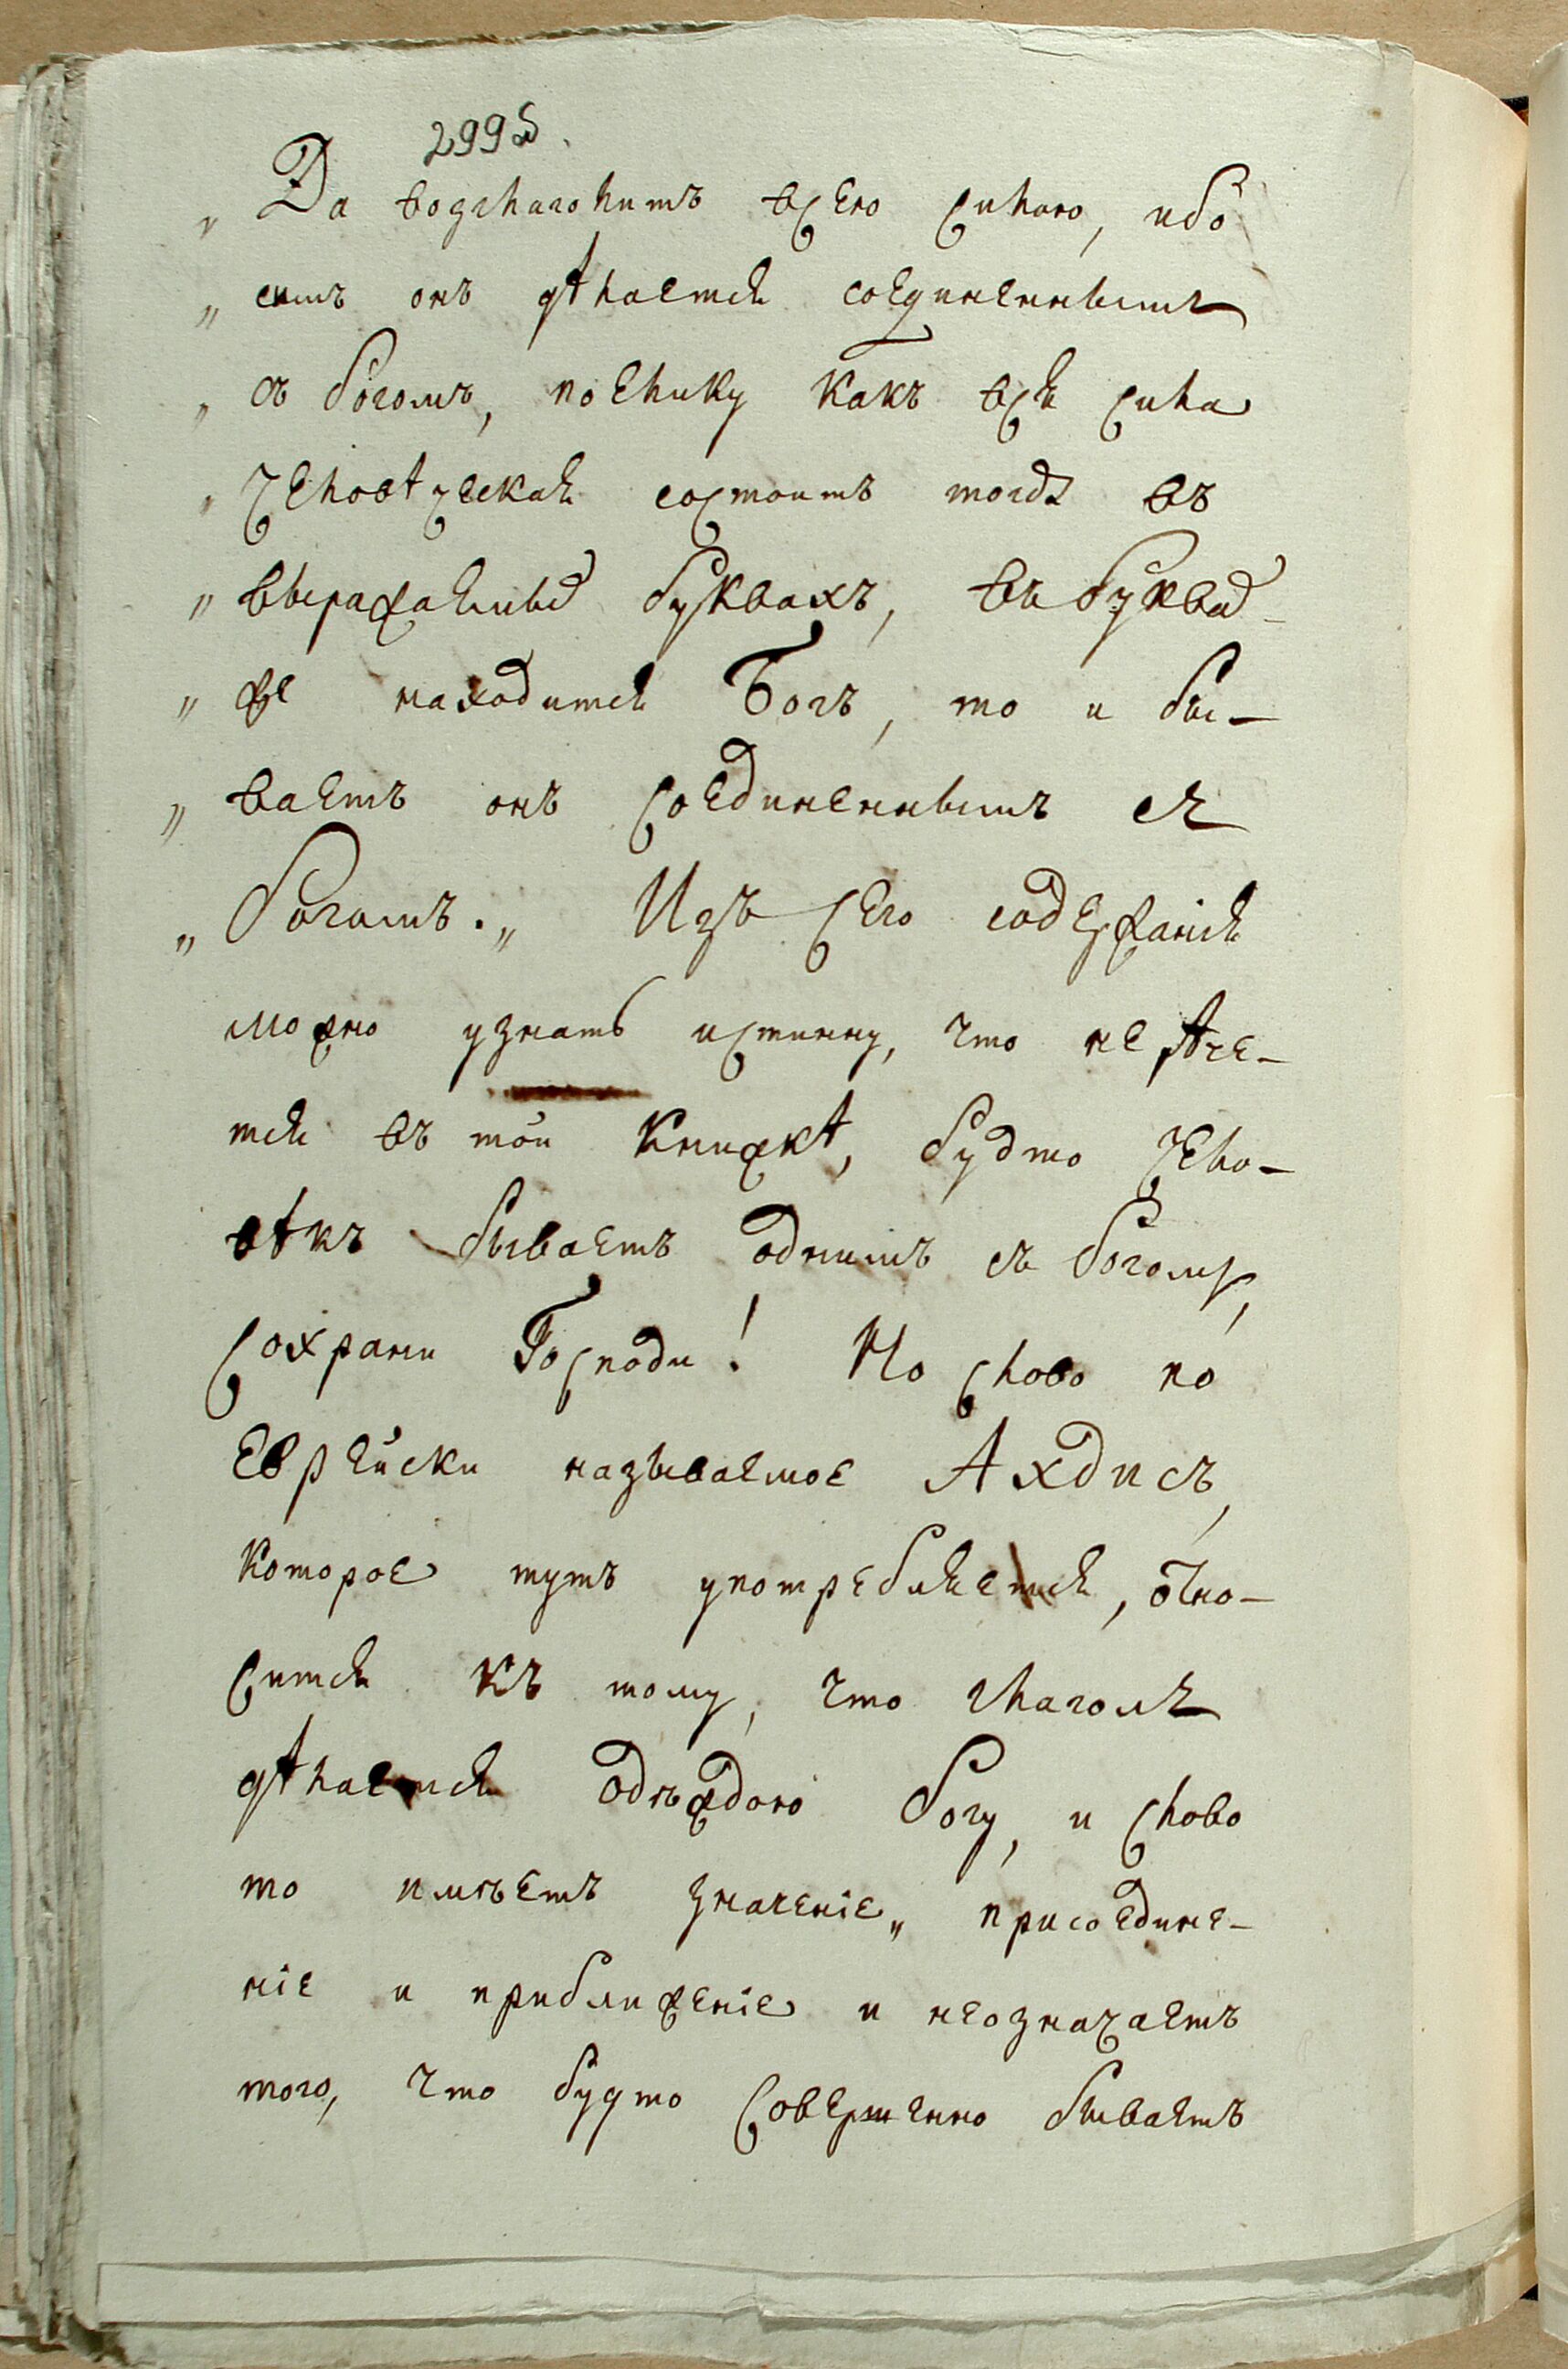 299б.
„ Да возглаголитъ всею силою, ибо
„ симъ онъ дѣлается соединеннымъ
„ съ богомъ, поелику какъ вся сила
„ человѣческая состоитъ тогда въ
„ выражаемыхъ буквахъ, въ буквахъ
„ же находится Богъ, то и бы-
„ ваетъ онъ соединеннымъ съ
„ богомъ.„ Изъ сего содержанія
можно узнать истинну, что не
тся въ той книжкѣ, будто чело-
вѣкъ бываетъ однимъ съ богомъ,
сохрани Господи! Но слово по
еврейски называемое Ахдисъ,
которое тутъ употребляется, отно-
сится къ тому, что глаголъ
дѣлается одеждою богу, и слово
то имѣетъ значеніе„ присоедине-
ніе и приближеніе и неозначаетъ
того, что будто совершенно бываетъ